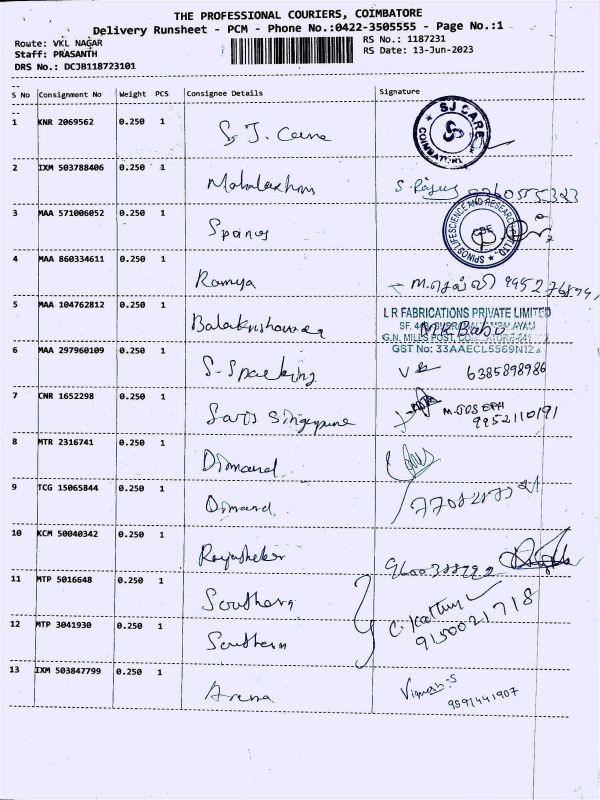 THE PROFESSIONAL COURIERS, COIMBATORE
Delivery Runsheet - PCM - Phone No.:0422-3505555 - Page No.:1
Route: VKL NAGAR
RS No.: 1187231
Staff: PRASANTH
RS Date: 13-Jun-2023
DRS No.: DCJB118723101
S No Consignment No Weight PCS Consignee Details Signature
1 KNR 2069562 0.250 1 SJ CARE COIMBATORE
2 IXM 503788406 0.250 1 Mahalaxhmi
3 MAA 571006052 0.250 1 Spinos SPINOS LIFESCIENCE AND RESEARCH CBE
4 MAA 860334611 0.250 1 Ramya
5 MAA 104762812 0.250 1 L R FABRICATIONS PRIVATE LIMITED
M.R Babu
G.N. MILLS POST,
GST No: 33AAECL5569N1Z
6 MAA 297960109 0.250 1 6385898986
7 CNR 1652298 0.250 1 M. JOSEPH
9952110191
8 MTR 2316741 0.250 1 Dimand
9 TCG 15065844 0.250 1 Dimand
10 KCM 50040342 0.250 1 Rajashekar
11 MTP 5016648 0.250 1 Southern
9150021718
12 MTP 3041930 0.250 1 Southern
13 IXM 503847799 0.250 1 Arena
9591441907